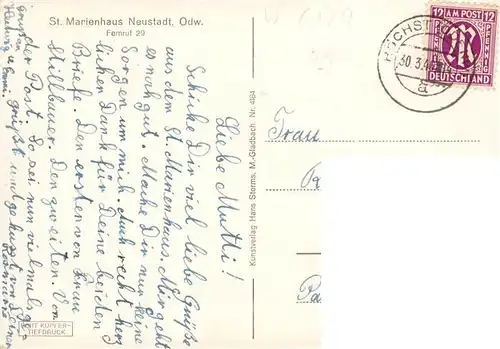 St. Marienhaus Neustadt, Odw.
Fernruf 29
Liebe Mutti!
Schicke Dir viel liebe Grüße
aus dem St. Marienhaus. Mir geht
es noch gut. Mache Dir nur keine
Sorgen um mich. Auch recht herz
lichen Dank für Deine beiden
Briefe. Den ersten von Frau
Stillbauer. Den zweiten. Von
der Post. So sei nun vielmals ge
grüßt und geküsst v. Deiner
Kunstverlag Hans Sterms, M.-Gladbach. Nr. 4184
MIT KUPFER-
TIEFDRUCK
HÖCHST
30.3.4
a
12 AM POST 12
PFENNIG
DEUTSCHLAND
Frau